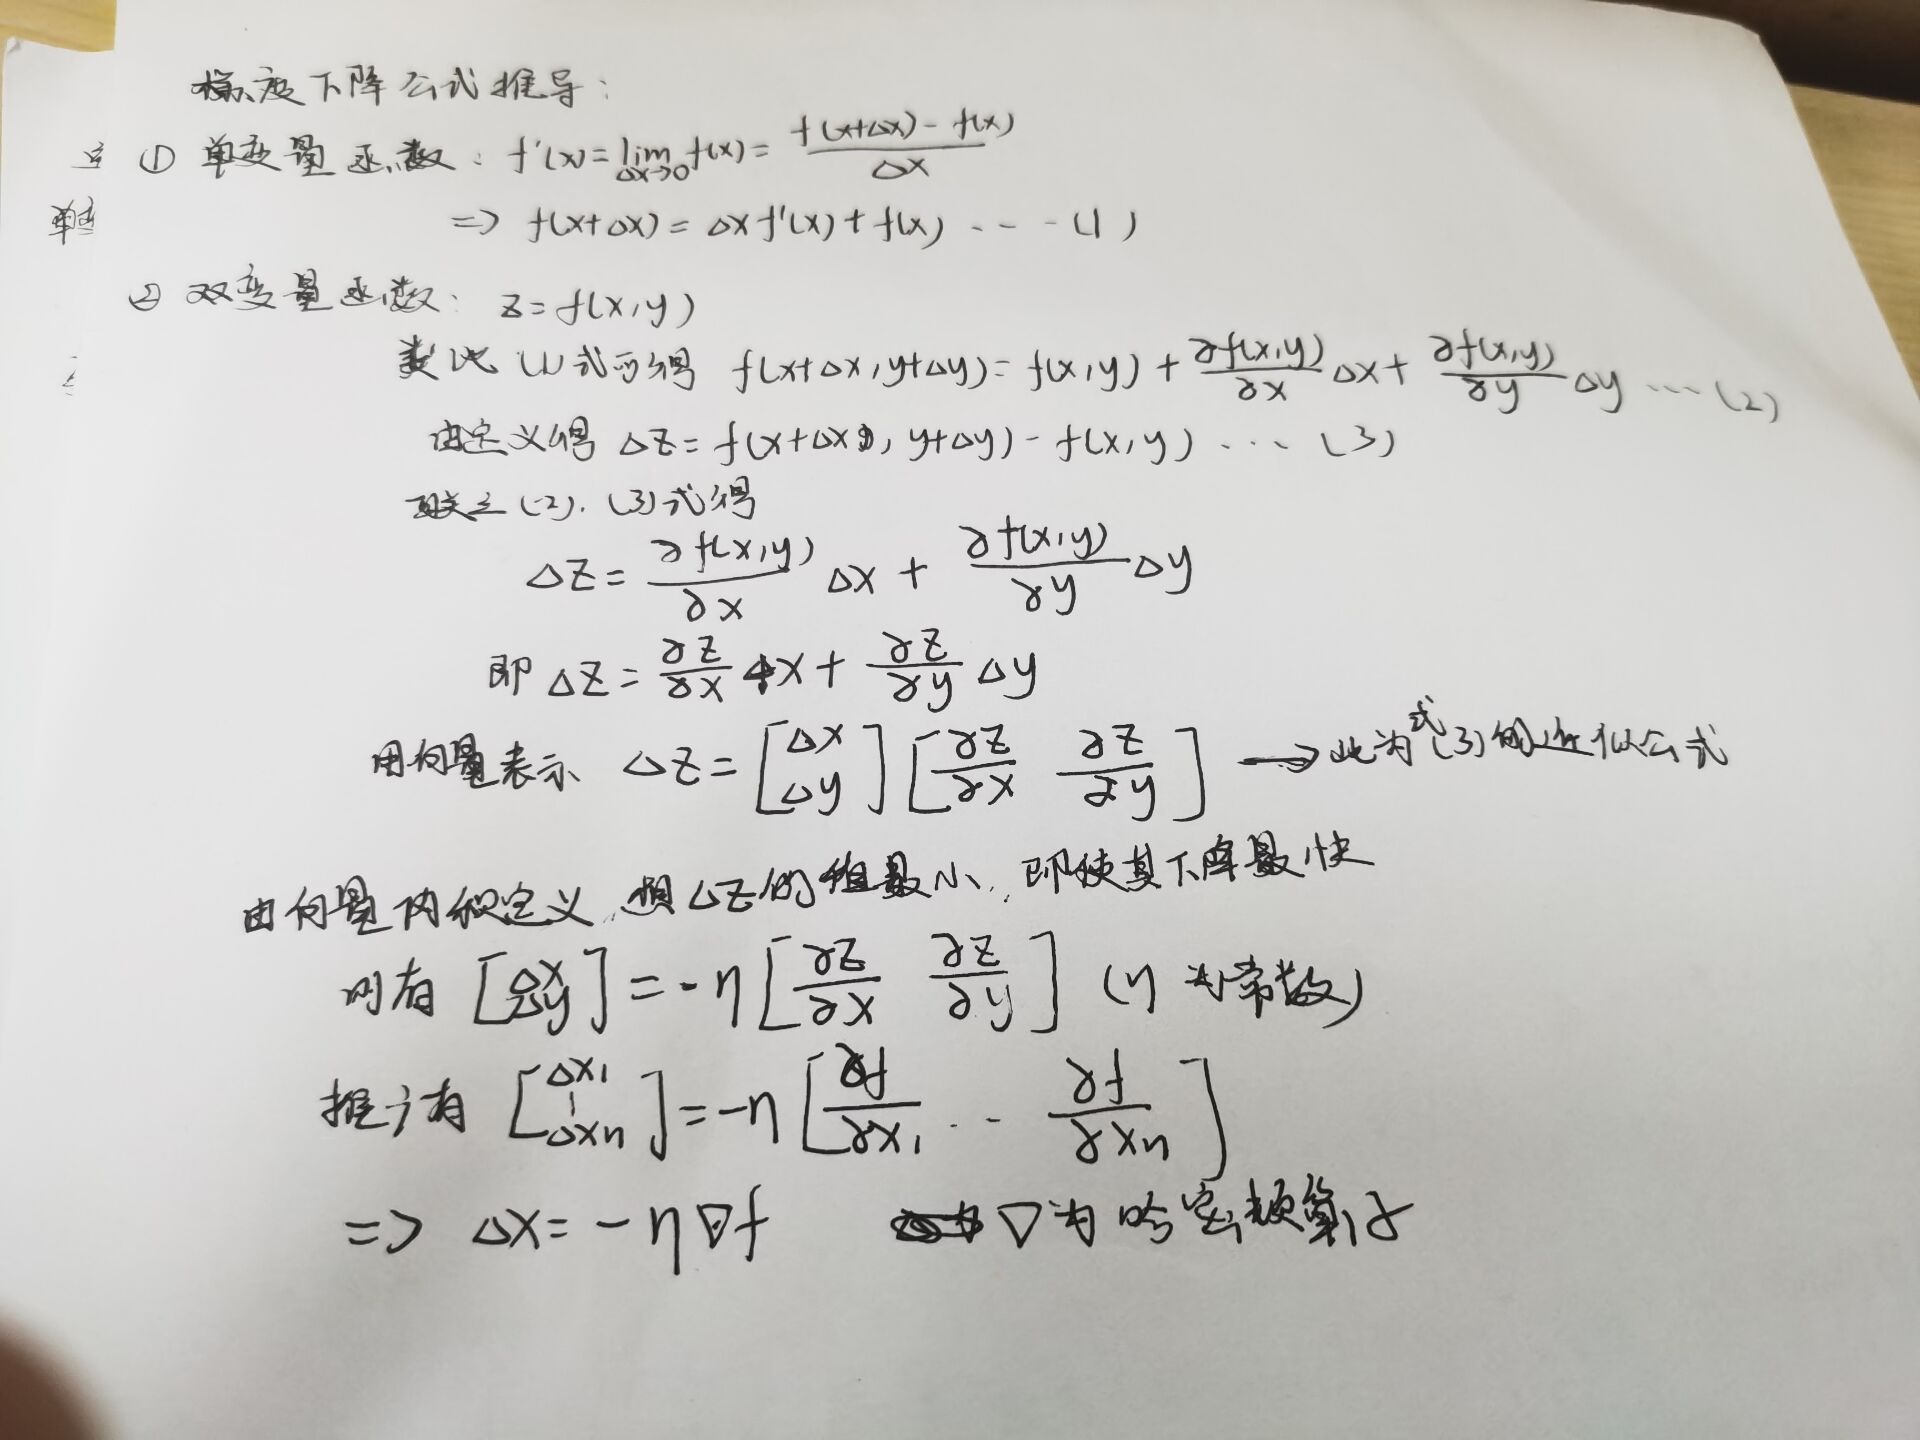 梯度下降公式推导：
① 单变量函数：f'(x)=lim Δx→0 f(x)= (f(x+Δx)-f(x))/Δx
=> f(x+Δx)=Δx f'(x)+f(x) ---- (1)
② 双变量函数：z=f(x,y)
类比(1)式可得 f(x+Δx,y+Δy)=f(x,y)+ ∂f(x,y)/∂x Δx+ ∂f(x,y)/∂y Δy ……(2)
由定义得 Δz=f(x+Δx, y+Δy)-f(x,y) …… (3)
联立(2).(3)式得
Δz= ∂f(x,y)/∂x Δx + ∂f(x,y)/∂y Δy
即 Δz= ∂z/∂x Δx+ ∂z/∂y Δy
用向量表示 Δz= [Δx Δy] [∂z/∂x ∂z/∂y] → 此为式(3)的近似公式
由向量内积定义,想Δz的值最小,即使其下降最快
则有 [Δx Δy] = -η [∂z/∂x ∂z/∂y] (η为常数)
推广有 [Δx1 ⋮ Δxn] = -η [∂f/∂x1 … ∂f/∂xn]
=> Δx= -η∇f ∇为哈密顿算子